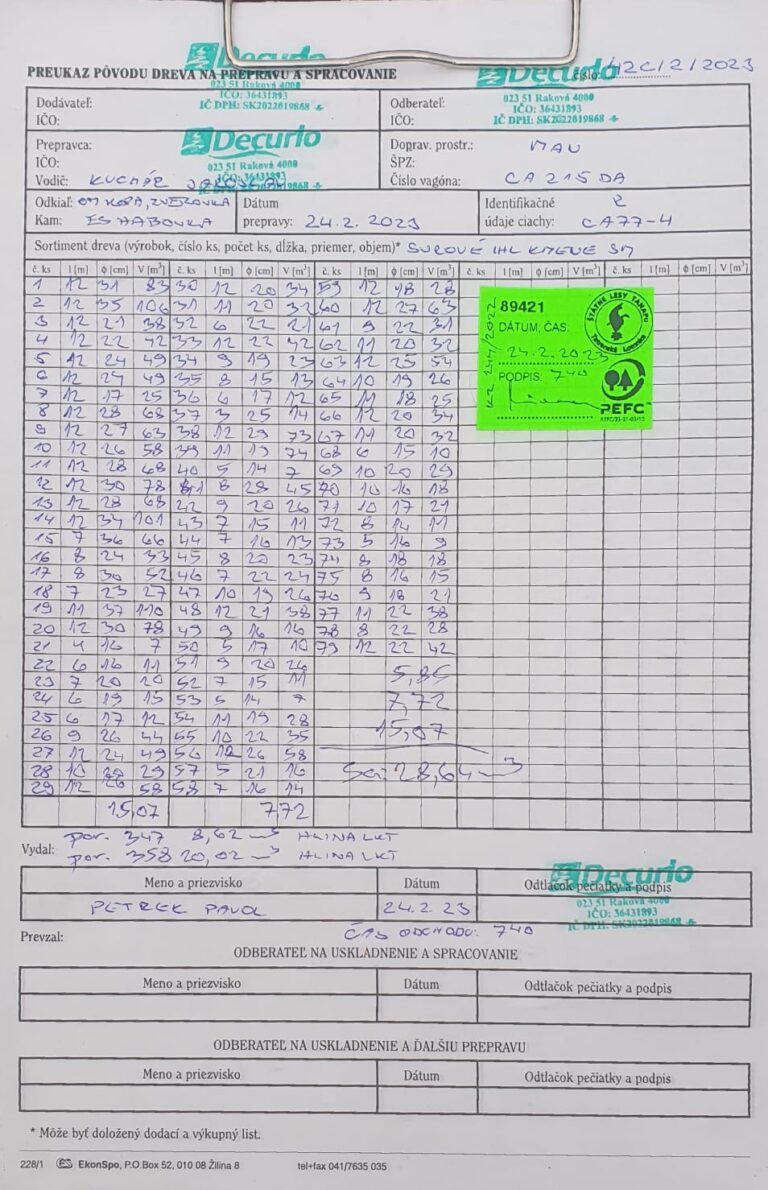 Decurio Decurio
PREUKAZ PÔVODU DREVA NA PREPRAVU A SPRACOVANIE číslo: 42C/2/2023
023 51 Raková 4000 023 51 Raková 4000
Dodávateľ: IČO: 36431893 Odberateľ: IČO: 36431893
IČO: IČ DPH: SK2022019868 IČO: IČ DPH: SK2022019868
Prepravca: Decurio Doprav. prostr.: MAN
IČO: 023 51 Raková 4000 ŠPZ:
Vodič: KUCHÁR Číslo vagóna: CA 215 DA
Odkiaľ: Dátum Identifikačné
Kam: ES HABOVKA prepravy: 24.2. 2023 údaje ciachy: CA77-4
Sortiment dreva (výrobok, číslo ks, počet ks, dĺžka, priemer, objem)* SUROVÉ IHL KMENE SM
č. ks l [m] ϕ [cm] V [m³] č. ks l [m] ϕ [cm] V [m³] č. ks l [m] ϕ [cm] V [m³] č. ks l [m] ϕ [cm] V [m³]
1 12 31 83 30 12 20 34 59 12 18 28
2 12 35 106 31 11 20 32 60 12 27 63
3 12 21 38 32 6 22 21 61 9 22 31
4 12 22 42 33 12 22 42 62 11 20 32
5 12 24 49 34 9 19 23 63 12 25 54
6 12 24 49 35 8 15 13 64 10 19 26
7 12 17 25 36 6 17 12 65 11 18 25
8 12 28 68 37 3 25 14 66 12 20 34
9 12 27 63 38 12 29 73 67 11 20 32
10 12 26 58 39 11 13 19 74 68 6 15 10
11 12 28 68 40 5 14 7 69 10 20 29
12 12 30 78 41 8 28 45 70 10 16 18
13 12 28 68 42 9 20 26 71 10 17 21
14 12 34 101 43 7 15 11 72 8 14 11
15 7 36 66 44 7 16 13 73 5 16 9
16 8 24 33 45 8 20 23 74 8 18 18
17 8 30 52 46 7 22 24 75 8 16 15
18 7 23 27 47 10 19 26 76 9 18 21
19 11 37 110 48 12 21 38 77 11 22 38
20 12 30 78 49 9 16 16 78 8 22 28
21 4 16 7 50 5 17 10 79 12 22 42
22 6 16 11 51 9 20 26
23 7 20 20 52 7 15 11 5,85
24 6 19 15 53 5 14 7 7,72
25 6 17 12 54 11 19 28
26 9 26 44 55 10 22 35 15,07
27 12 24 49 56 12 26 58
28 10 20 29 57 5 21 16 28,64 m³
29 12 26 58 58 7 16 14
15,07 7,72
89421
DÁTUM, ČAS:
24.2.2023
PODPIS: 740
ŠTÁTNE LESY TANAPu
Tatranská Lomnica
PEFC
Vydal: por. 347 8,62 m³ HLINA LKT
por. 358 20,02 m³ HLINA LKT
Decurio
Meno a priezvisko Dátum Odtlačok pečiatky a podpis
PETREK PAVOL 24.2. 23 023 51 Raková 4000
IČO: 36431893
IČ DPH: SK2022019868
Prevzal: ČAS ODCHODU: 740
ODBERATEĽ NA USKLADNENIE A SPRACOVANIE
Meno a priezvisko Dátum Odtlačok pečiatky a podpis
ODBERATEĽ NA USKLADNENIE A ĎALŠIU PREPRAVU
Meno a priezvisko Dátum Odtlačok pečiatky a podpis
* Môže byť doložený dodací a výkupný list.
228/1 EkonSpo, P.O.Box 52, 010 08 Žilina 8 tel+fax 041/7635 035